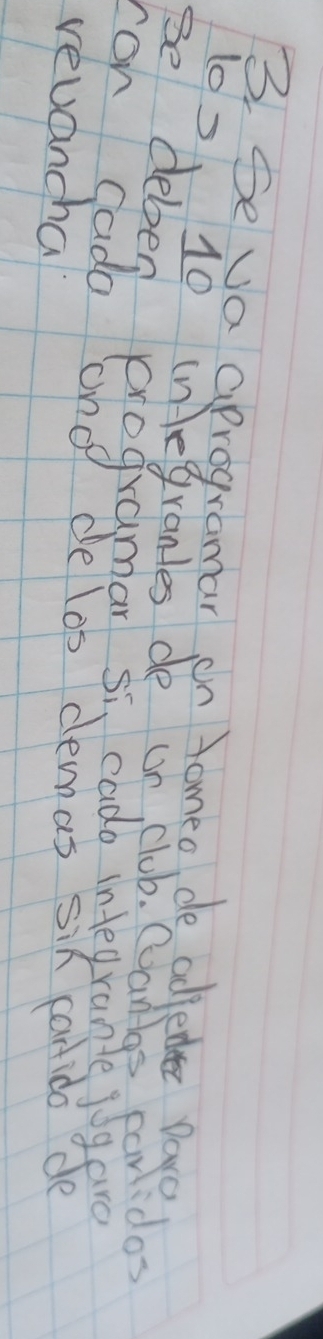 3. Se va aprogramar un torneo de adjedrez Para
los 10 integrantes de un club. Cuantos partidos
se deben programar si cada integrante jugara
con cada uno de los demas sin partido de
revancha.